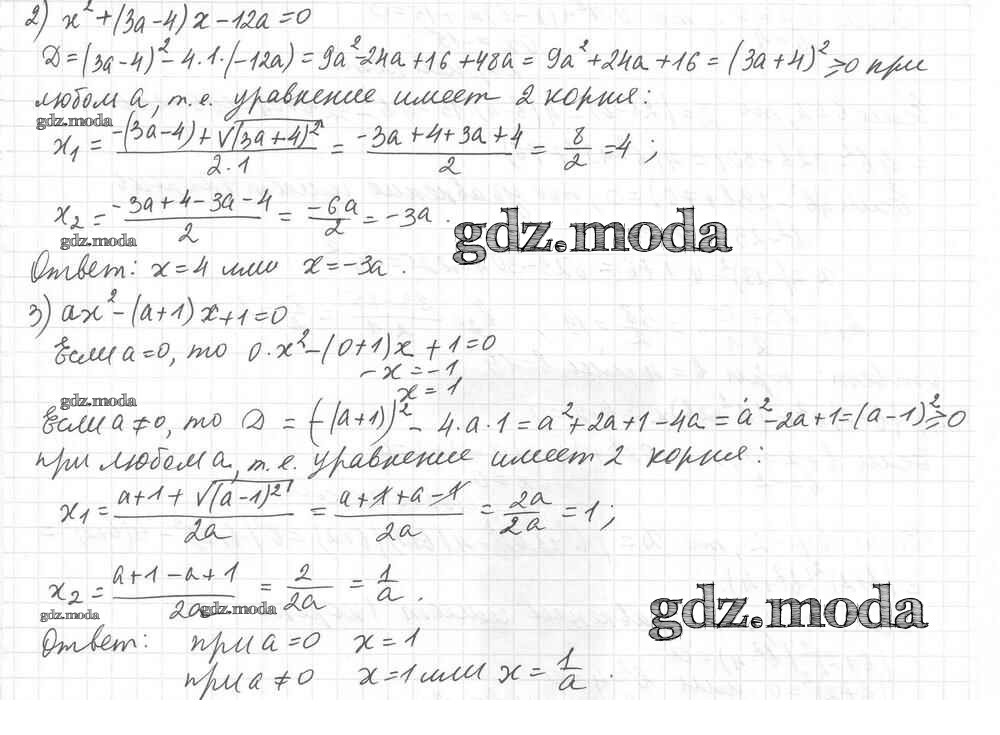 2) x² + (3a-4)x - 12a = 0
D = (3a-4)² - 4·1·(-12a) = 9a² - 24a + 16 + 48a = 9a² + 24a + 16 = (3a+4)² ≥ 0 при
любом a, т.е. уравнение имеет 2 корня:
gdz.moda
x₁ = (-(3a-4) + √(3a+4)²)/(2·1) = (-3a+4+3a+4)/2 = 8/2 = 4;
x₂ = (-3a+4-3a-4)/2 = -6a/2 = -3a.
gdz.moda
gdz.moda
Ответ: x = 4 или x = -3a.
3) ax² - (a+1)x + 1 = 0
Если a = 0, то 0·x² - (0+1)x + 1 = 0
-x = -1
x = 1
gdz.moda
Если a ≠ 0, то D = (-(a+1))² - 4·a·1 = a² + 2a + 1 - 4a = a² - 2a + 1 = (a-1)² ≥ 0
при любом a, т.е. уравнение имеет 2 корня:
x₁ = (a+1+√(a-1)²)/2a = (a+1+a-1)/2a = 2a/2a = 1;
x₂ = (a+1-a+1)/2a = 2/2a = 1/a.
gdz.moda
gdz.moda
gdz.moda
Ответ: при a = 0 x = 1
при a ≠ 0 x = 1 или x = 1/a.